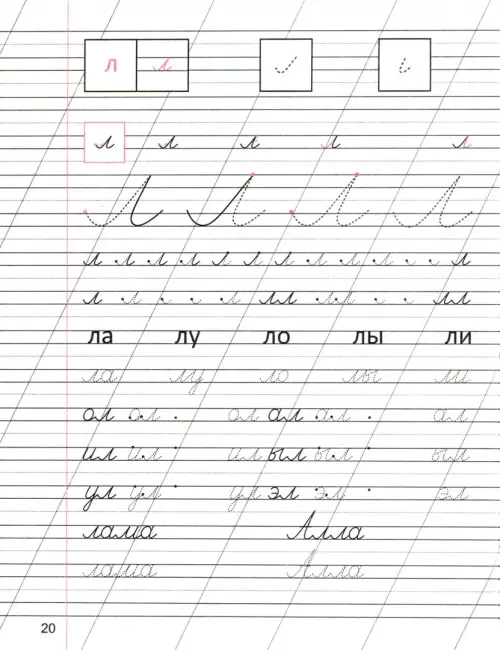 л л
л л л л л
Л Л Л Л
л л л л л л л л л л л
л л л лл лл лл
ла лу ло лы ли
ла лу ло лы ли
ол ол ол ал ал ал
ил ил ил ыл ыл ыл
ул ул ул эл эл эл
лама Алла
лама Алла
20